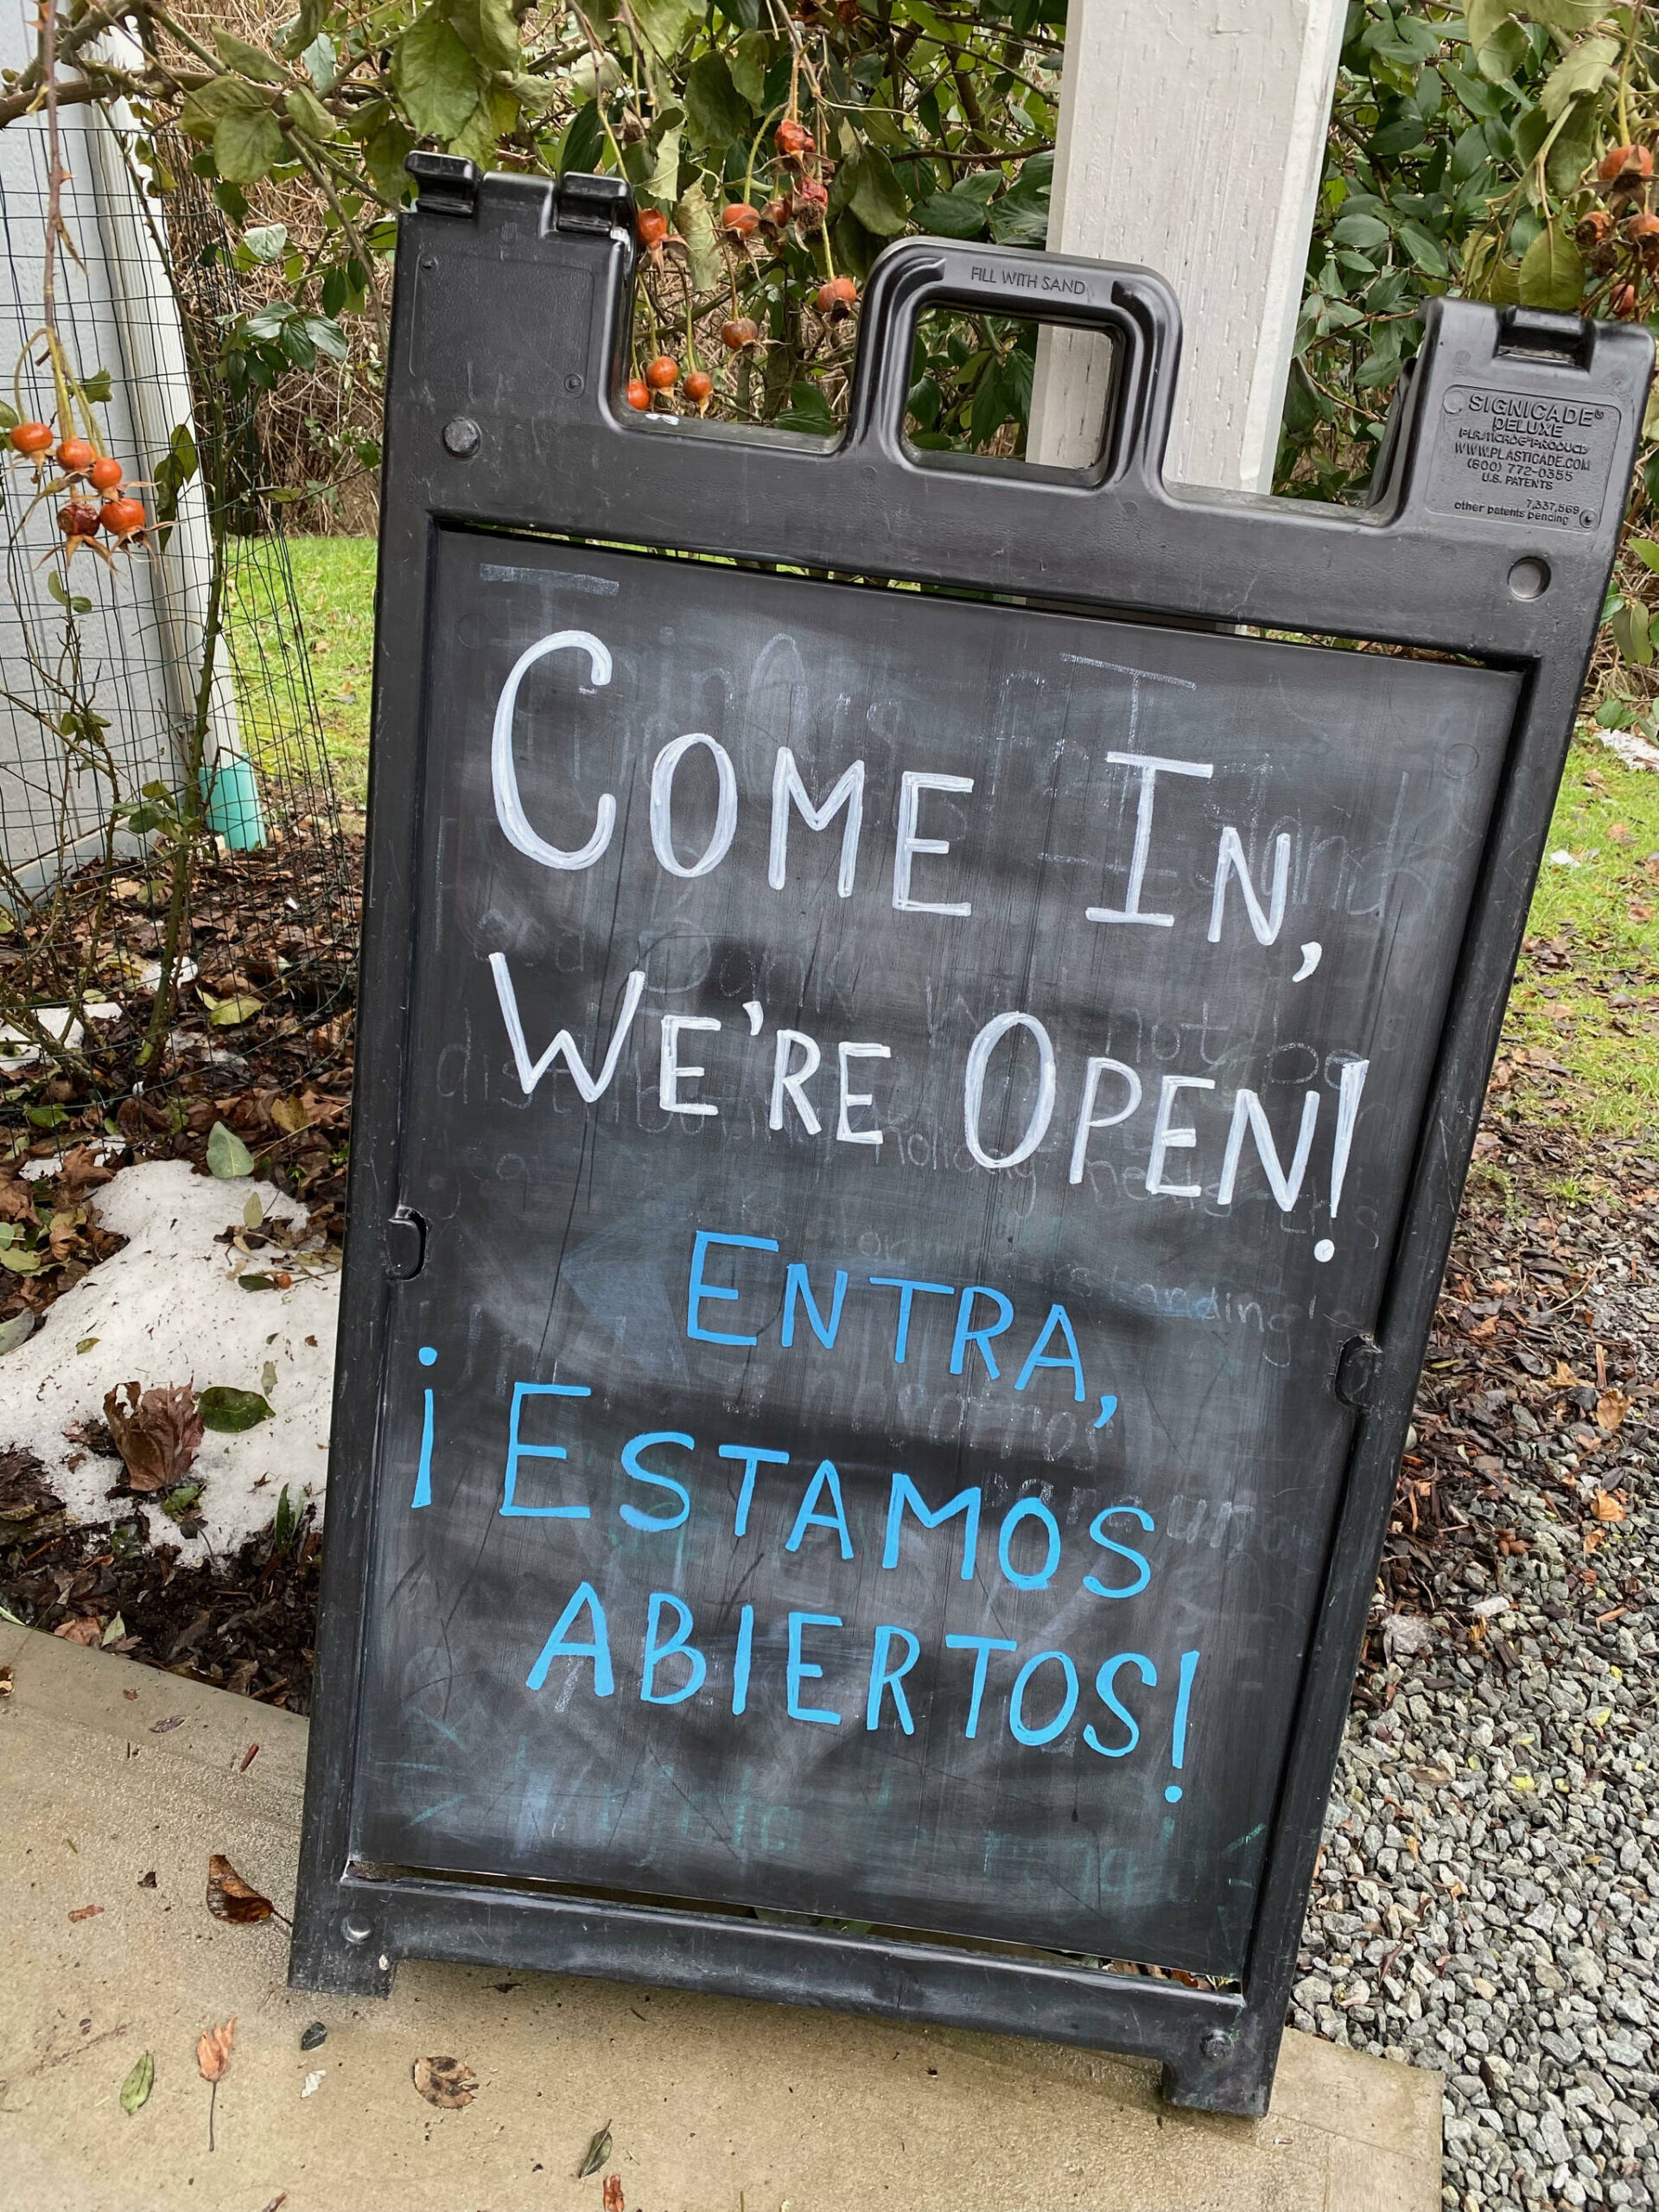 FILL WITH SAND
SIGNICADE®
DELUXE
PLASTICADE® PRODUCTS
WWW.PLASTICADE.COM
(800) 772-0355
U.S. PATENTS
7,337,569
other patents pending
COME IN,
WE'RE OPEN!
ENTRA,
¡ESTAMOS
ABIERTOS!